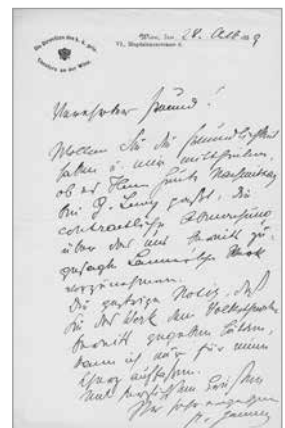 Die Direction des k. k. priv.
Theaters an der Wien.
Wien, den 28. Octb
VI., Magdalenenstrasse 8.
Verehrter Freund!
Wollen Sie die Freundlichkeit
haben u. mir mittheilen,
ob es Ihnen heute Nachmittag
bei J. paßt, die
contractliche Abmachung
über das uns bereits zu-
gesagte Werk
vorzunehmen.
Die gestrige Notiz, daß
Sie das Werk dem Volkstheater
bereits gegeben hätten,
kann ich nur für einen
Scherz auffassen.
Mit herzlichen Grüßen
Ihr sehr ergebener